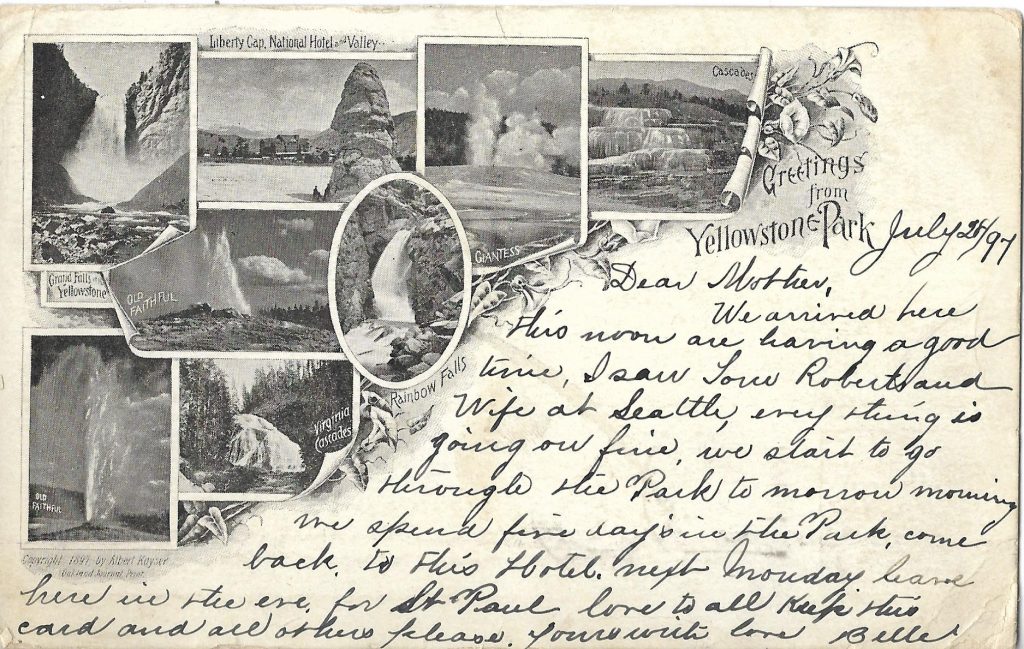 Liberty Cap, National Hotel and Valley.
Cascades
Greetings
from
Yellowstone Park
GIANTESS
Grand Falls of
Yellowstone
OLD
FAITHFUL
Rainbow Falls
Virginia
Cascades
OLD
FAITHFUL
Copyright 1897, by Albert Kayser
Oakland Journal Print.
July /97
Dear Mother,
We arrived here
this noon are having a good
time, I saw Tom Roberts and
Wife at Seattle, every thing is
going on fine, we start to go
through the Park to morrow morning
we spend five day's in the Park, come
back, to this Hotel. next Monday leave
here in the eve, for St Paul love to all Keep this
card and all others please. Yours with love Belle